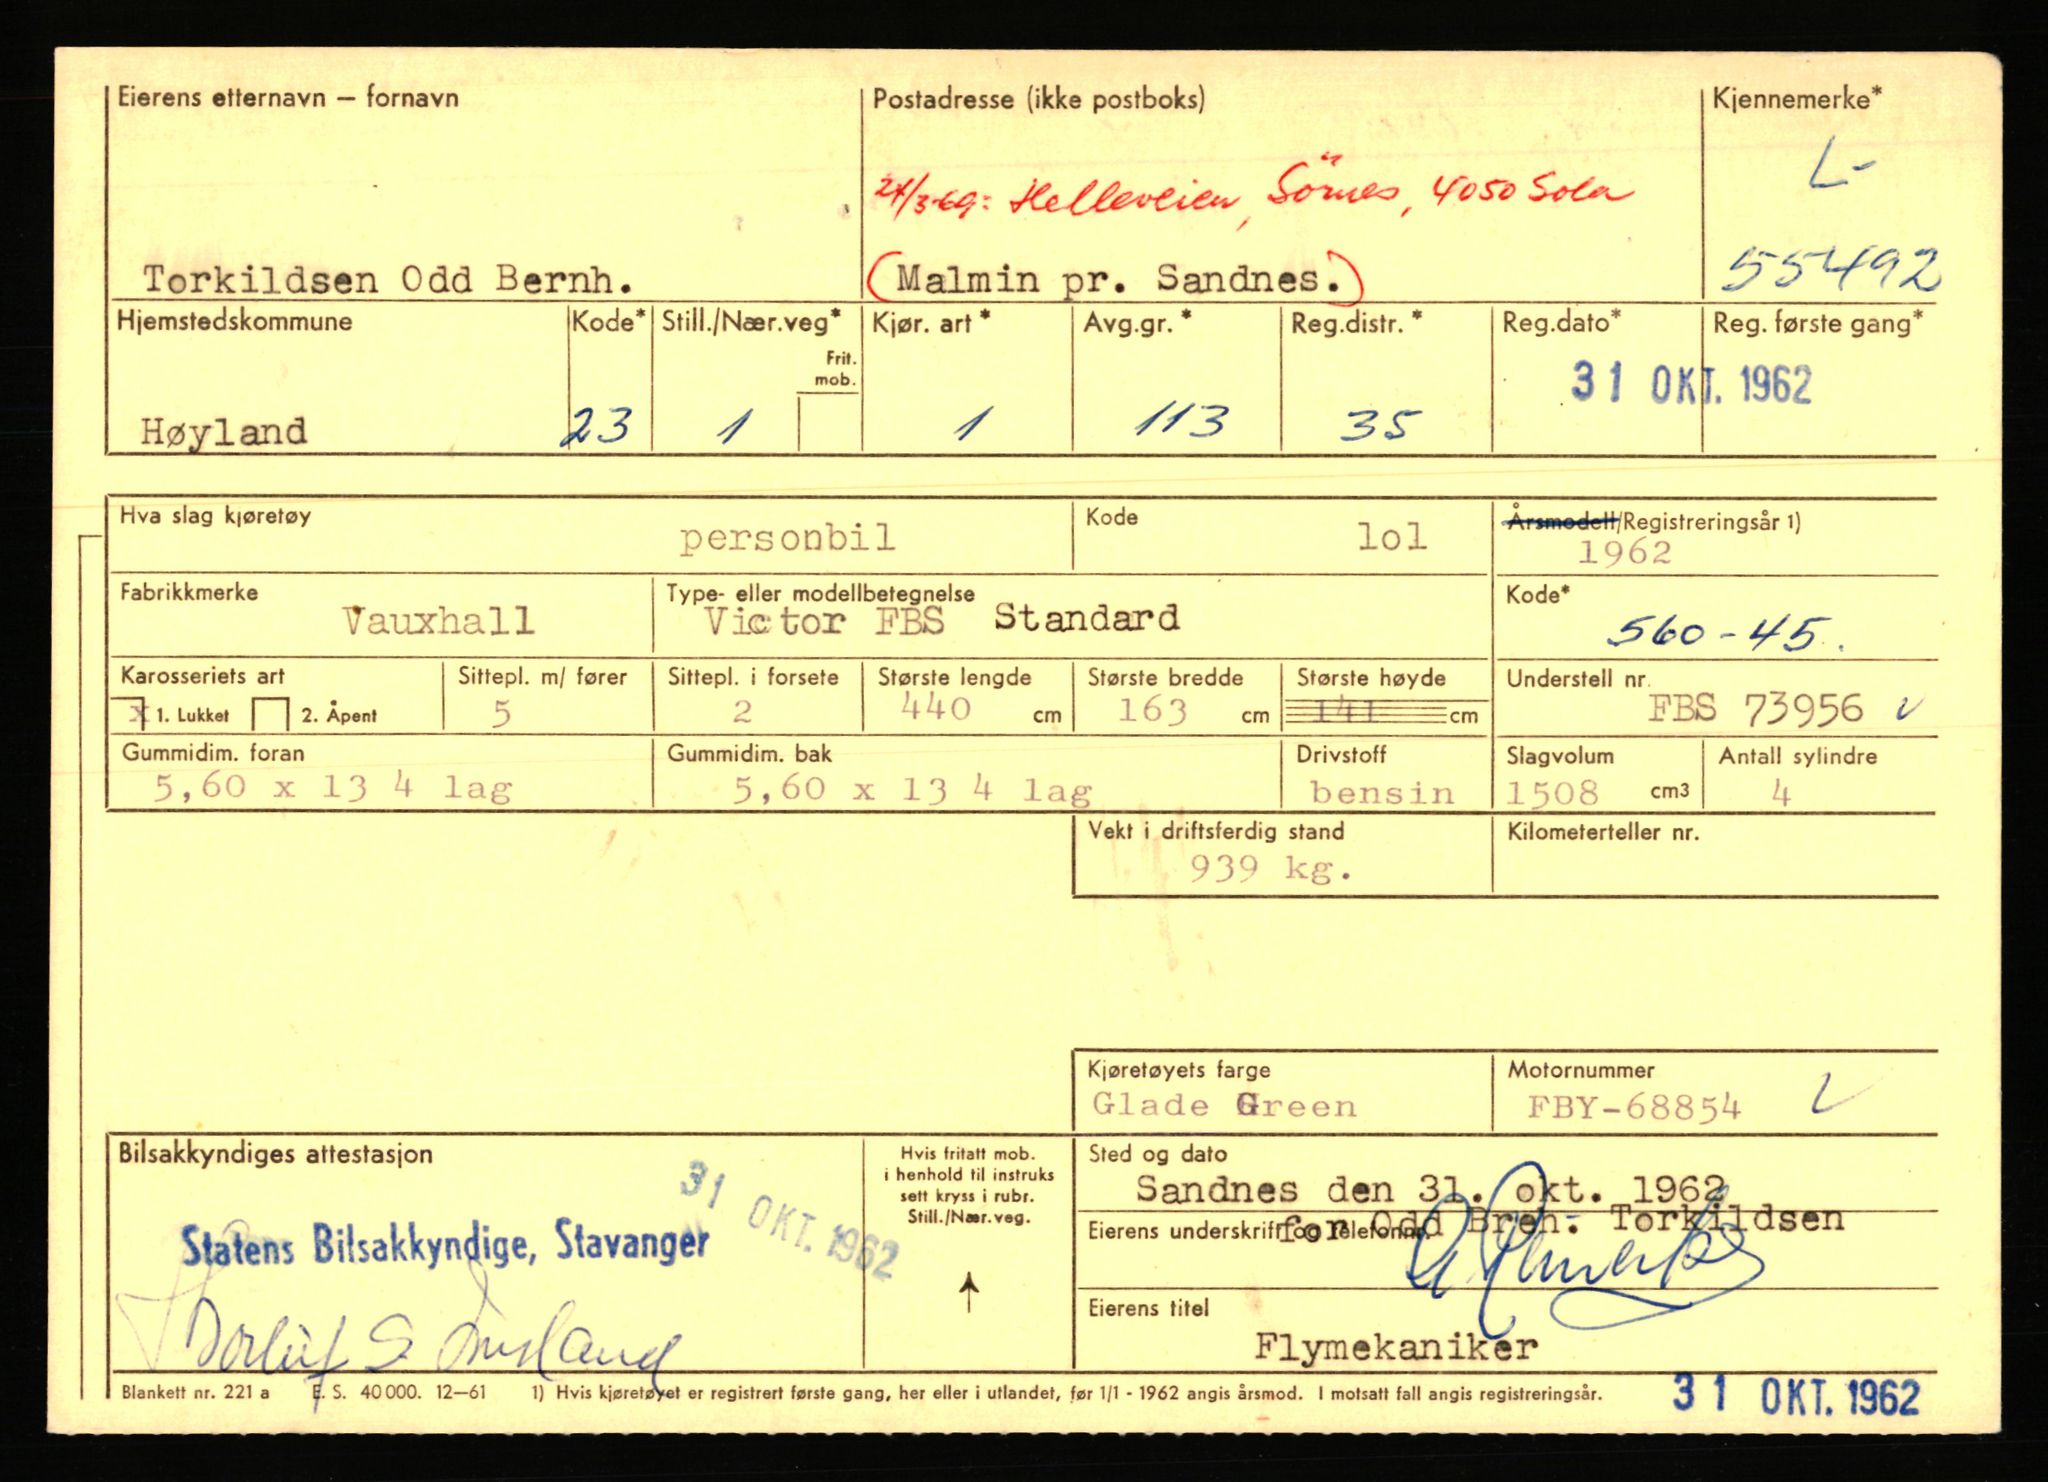 Eierens etternavn – fornavn
Postadresse (ikke postboks)
Kjennemerke*
L-
27/3-69: Helleveien, Sörnes, 4050 Sola
Torkildsen Odd Bernh.
(Malmin pr. Sandnes.)
55492
Hjemstedskommune
Kode*
Still./Nær.veg*
Kjør. art *
Avg.gr. *
Reg.distr. *
Reg.dato*
Reg. første gang*
Frit.
mob.
31 OKT. 1962
Høyland
23
1
1
113
35
Hva slag kjøretøy
personbil
Kode
lol
Årsmodell/Registreringsår 1)
1962
Fabrikkmerke
Vauxhall
Type- eller modellbetegnelse
Victor FBS Standard
Kode*
560-45.
Karosseriets art
x 1. Lukket 2. Åpent
Sittepl. m/ fører
5
Sittepl. i forsete
2
Største lengde
440 cm
Største bredde
163 cm
Største høyde
141 cm
Understell nr.
FBS 73956 v
Gummidim. foran
5,60 x 13 4 lag
Gummidim. bak
5,60 x 13 4 lag
Drivstoff
bensin
Slagvolum
1508 cm3
Antall sylindre
4
Vekt i driftsferdig stand
939 kg.
Kilometerteller nr.
Kjøretøyets farge
Glade Green
Motornummer
FBY-68854 v
Bilsakkyndiges attestasjon
31 OKT. 1962
Statens Bilsakkyndige, Stavanger
Hvis fritatt mob.
i henhold til instruks
sett kryss i rubr.
Still./Nær.veg.
Sted og dato
Sandnes den 31. okt. 1962
Eierens underskrift og telefonnr.
for Odd Breh. Torkildsen
Eierens titel
Flymekaniker
Blankett nr. 221 a E. S. 40 000. 12–61 1) Hvis kjøretøyet er registrert første gang, her eller i utlandet, før 1/1 - 1962 angis årsmod. I motsatt fall angis registreringsår.
31 OKT. 1962